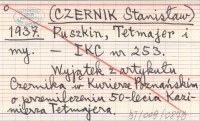 (CZERNIK Stanisław)
1937. Puszkin, Tetmajer i
my. — IKC nr 253.
Wyjątek z artykułu
Czernika w Kurierze Poznańskim
o przemilczeniu 50-lecia Kazi-
mierza Tetmajera.